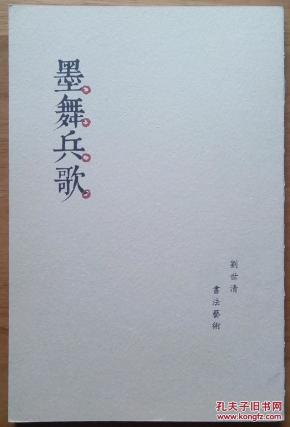 墨舞兵歌
劉世清
書法藝術
孔夫子旧书网